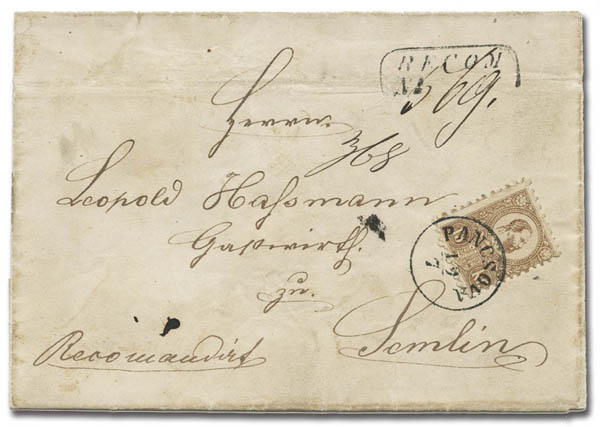 RECOM
N
569.
Herrn
368
Leopold Haßmann
Gastwirth
zu
Semlin
Recomandirt
PANCSOVA